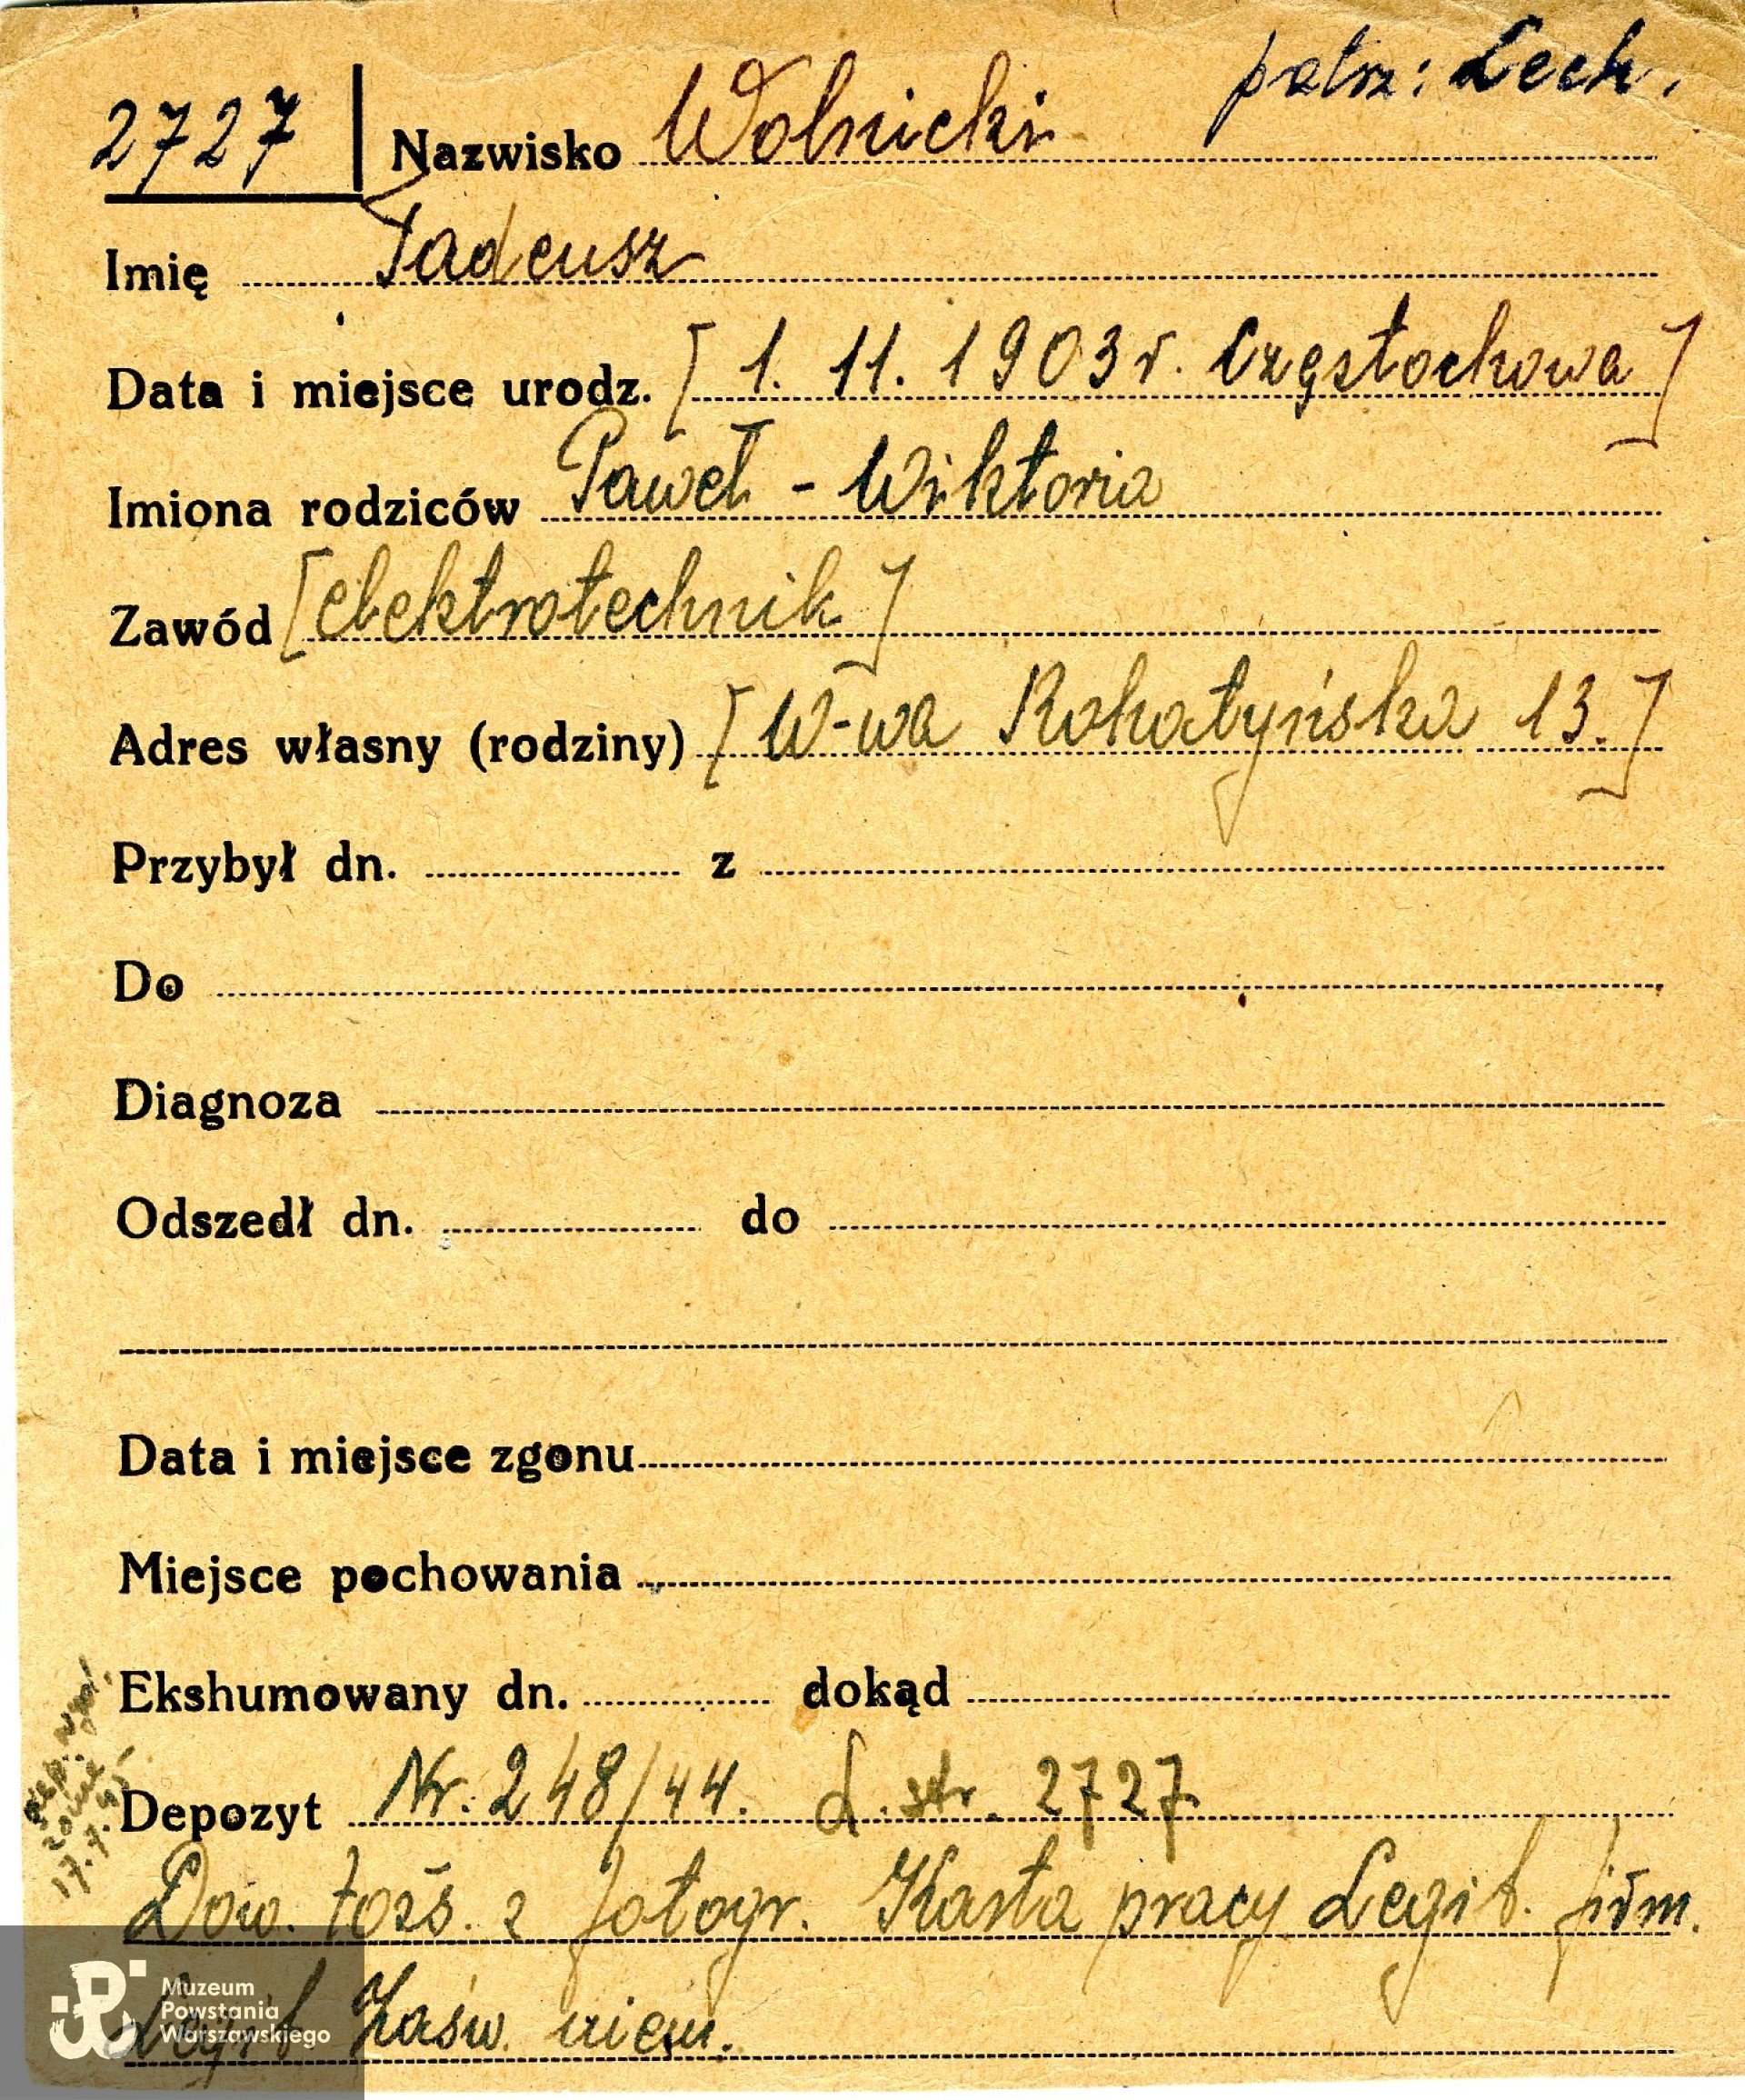 patrz: Lech.
2727 Nazwisko Wolnicki
Imię Tadeusz
Data i miejsce urodz. [1. 11. 1903 r. Częstochowa]
Imiona rodziców Paweł - Wiktoria
Zawód [elektrotechnik]
Adres własny (rodziny) [W-wa Rohatyńska 13.]
Przybył dn. z
Do
Diagnoza
Odszedł dn. do
Data i miejsce zgonu
Miejsce pochowania
Ekshumowany dn. dokąd
Depozyt Nr. 248/44. L. str. 2727.
Dow. tożs. z fotogr. Karta pracy Legit. firm.
Legit Zaśw. niem.
17.7.45
Muzeum
Powstania
Warszawskiego